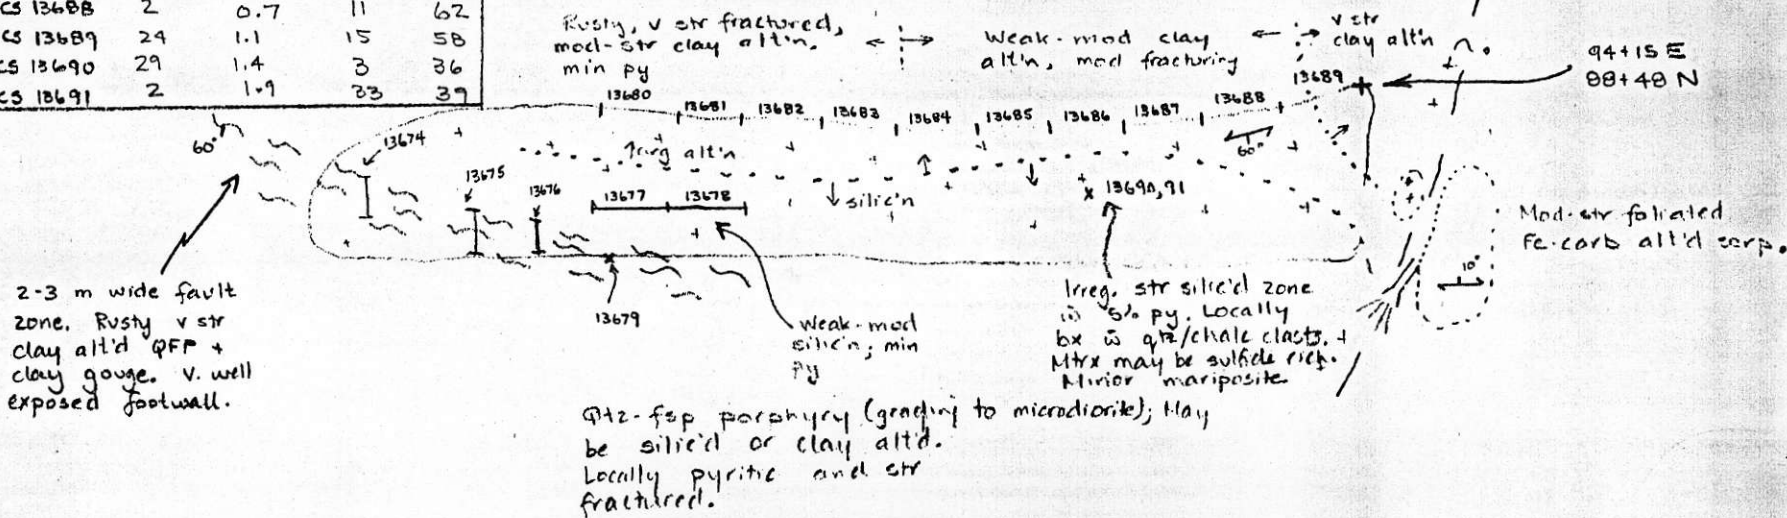 CS 13688 2 0.7 11 62
CS 13689 24 1.1 15 58
CS 13690 29 1.4 3 36
CS 13691 2 1.9 33 39
Rusty, v str fractured,
mod-str clay alt'n,
min py
Weak-mod clay
alt'n, mod fracturing
v str
clay alt'n
94+15 E
88+48 N
13680
13681
13682
13683
13684
13685
13686
13687
13688
13689
60°
13674
13675
13676
13677
13678
alt'n
silic'n
60°
13690,91
13679
10°
Mod-str foliated
Fe-carb alt'd serp.
2-3 m wide fault
zone. Rusty v str
clay alt'd QFP +
clay gouge. V. well
exposed footwall.
Weak-mod
silic'n; min
py
Irreg. str silic'd zone
w 5% py. Locally
bx w qtz/chalc clasts. +
Mtrx may be sulfide rich.
Minor mariposite
Qtz-fsp porphyry (grading to microdiorite); May
be silic'd or clay alt'd.
Locally pyritic and str
fractured.